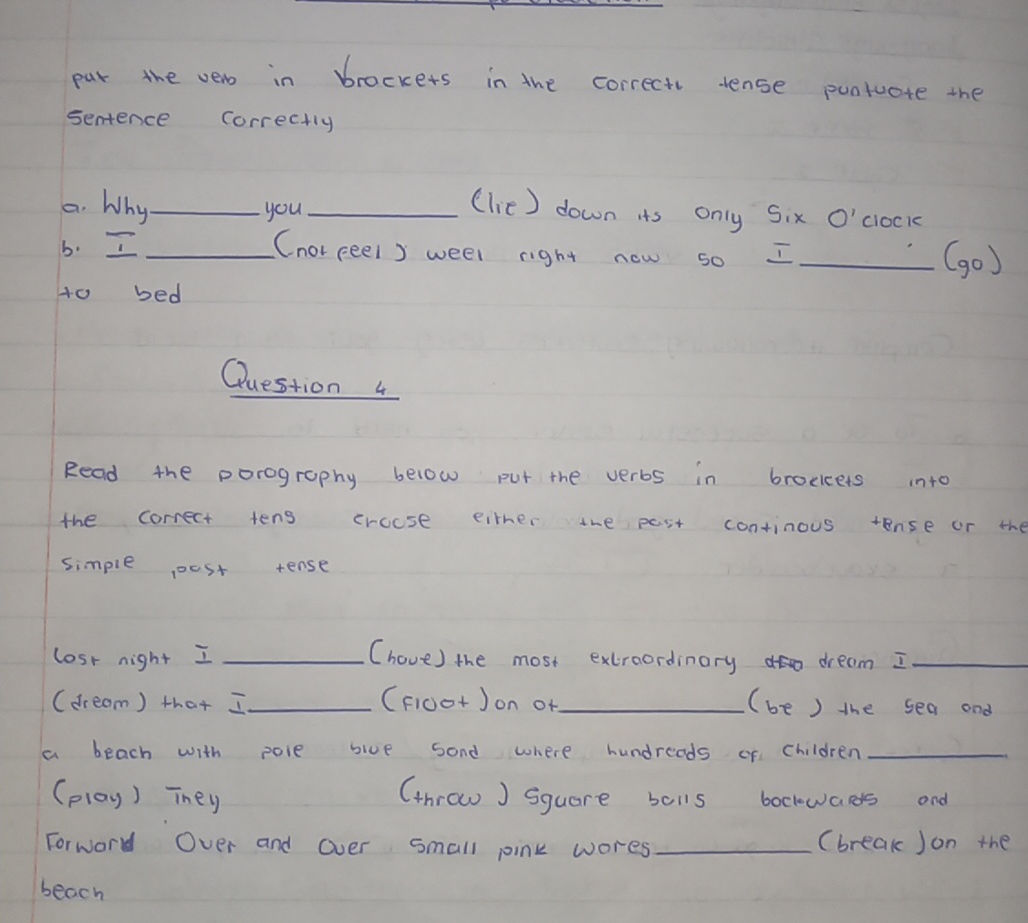 put the verb in brackets in the correctt tense puntuate the
sentence correctly
a. Why______ you________ (lie) down its only Six O'clock
b. I ________ (not feel) weel right now so I ________ (go)
to bed
Question 4
Read the porography below put the verbs in brockets into
the correct tens croose either the past continous tense or the
simple past tense
Last night I ________ (have) the most extraordinary dream I ________
(dream) that I ________ (float) on at ________ (be) the sea and
a beach with pale blue sand where hundreads of children ________
(play) They (throw) Square balls backwards and
Forward Over and over small pink wares ________ (break) on the
beach